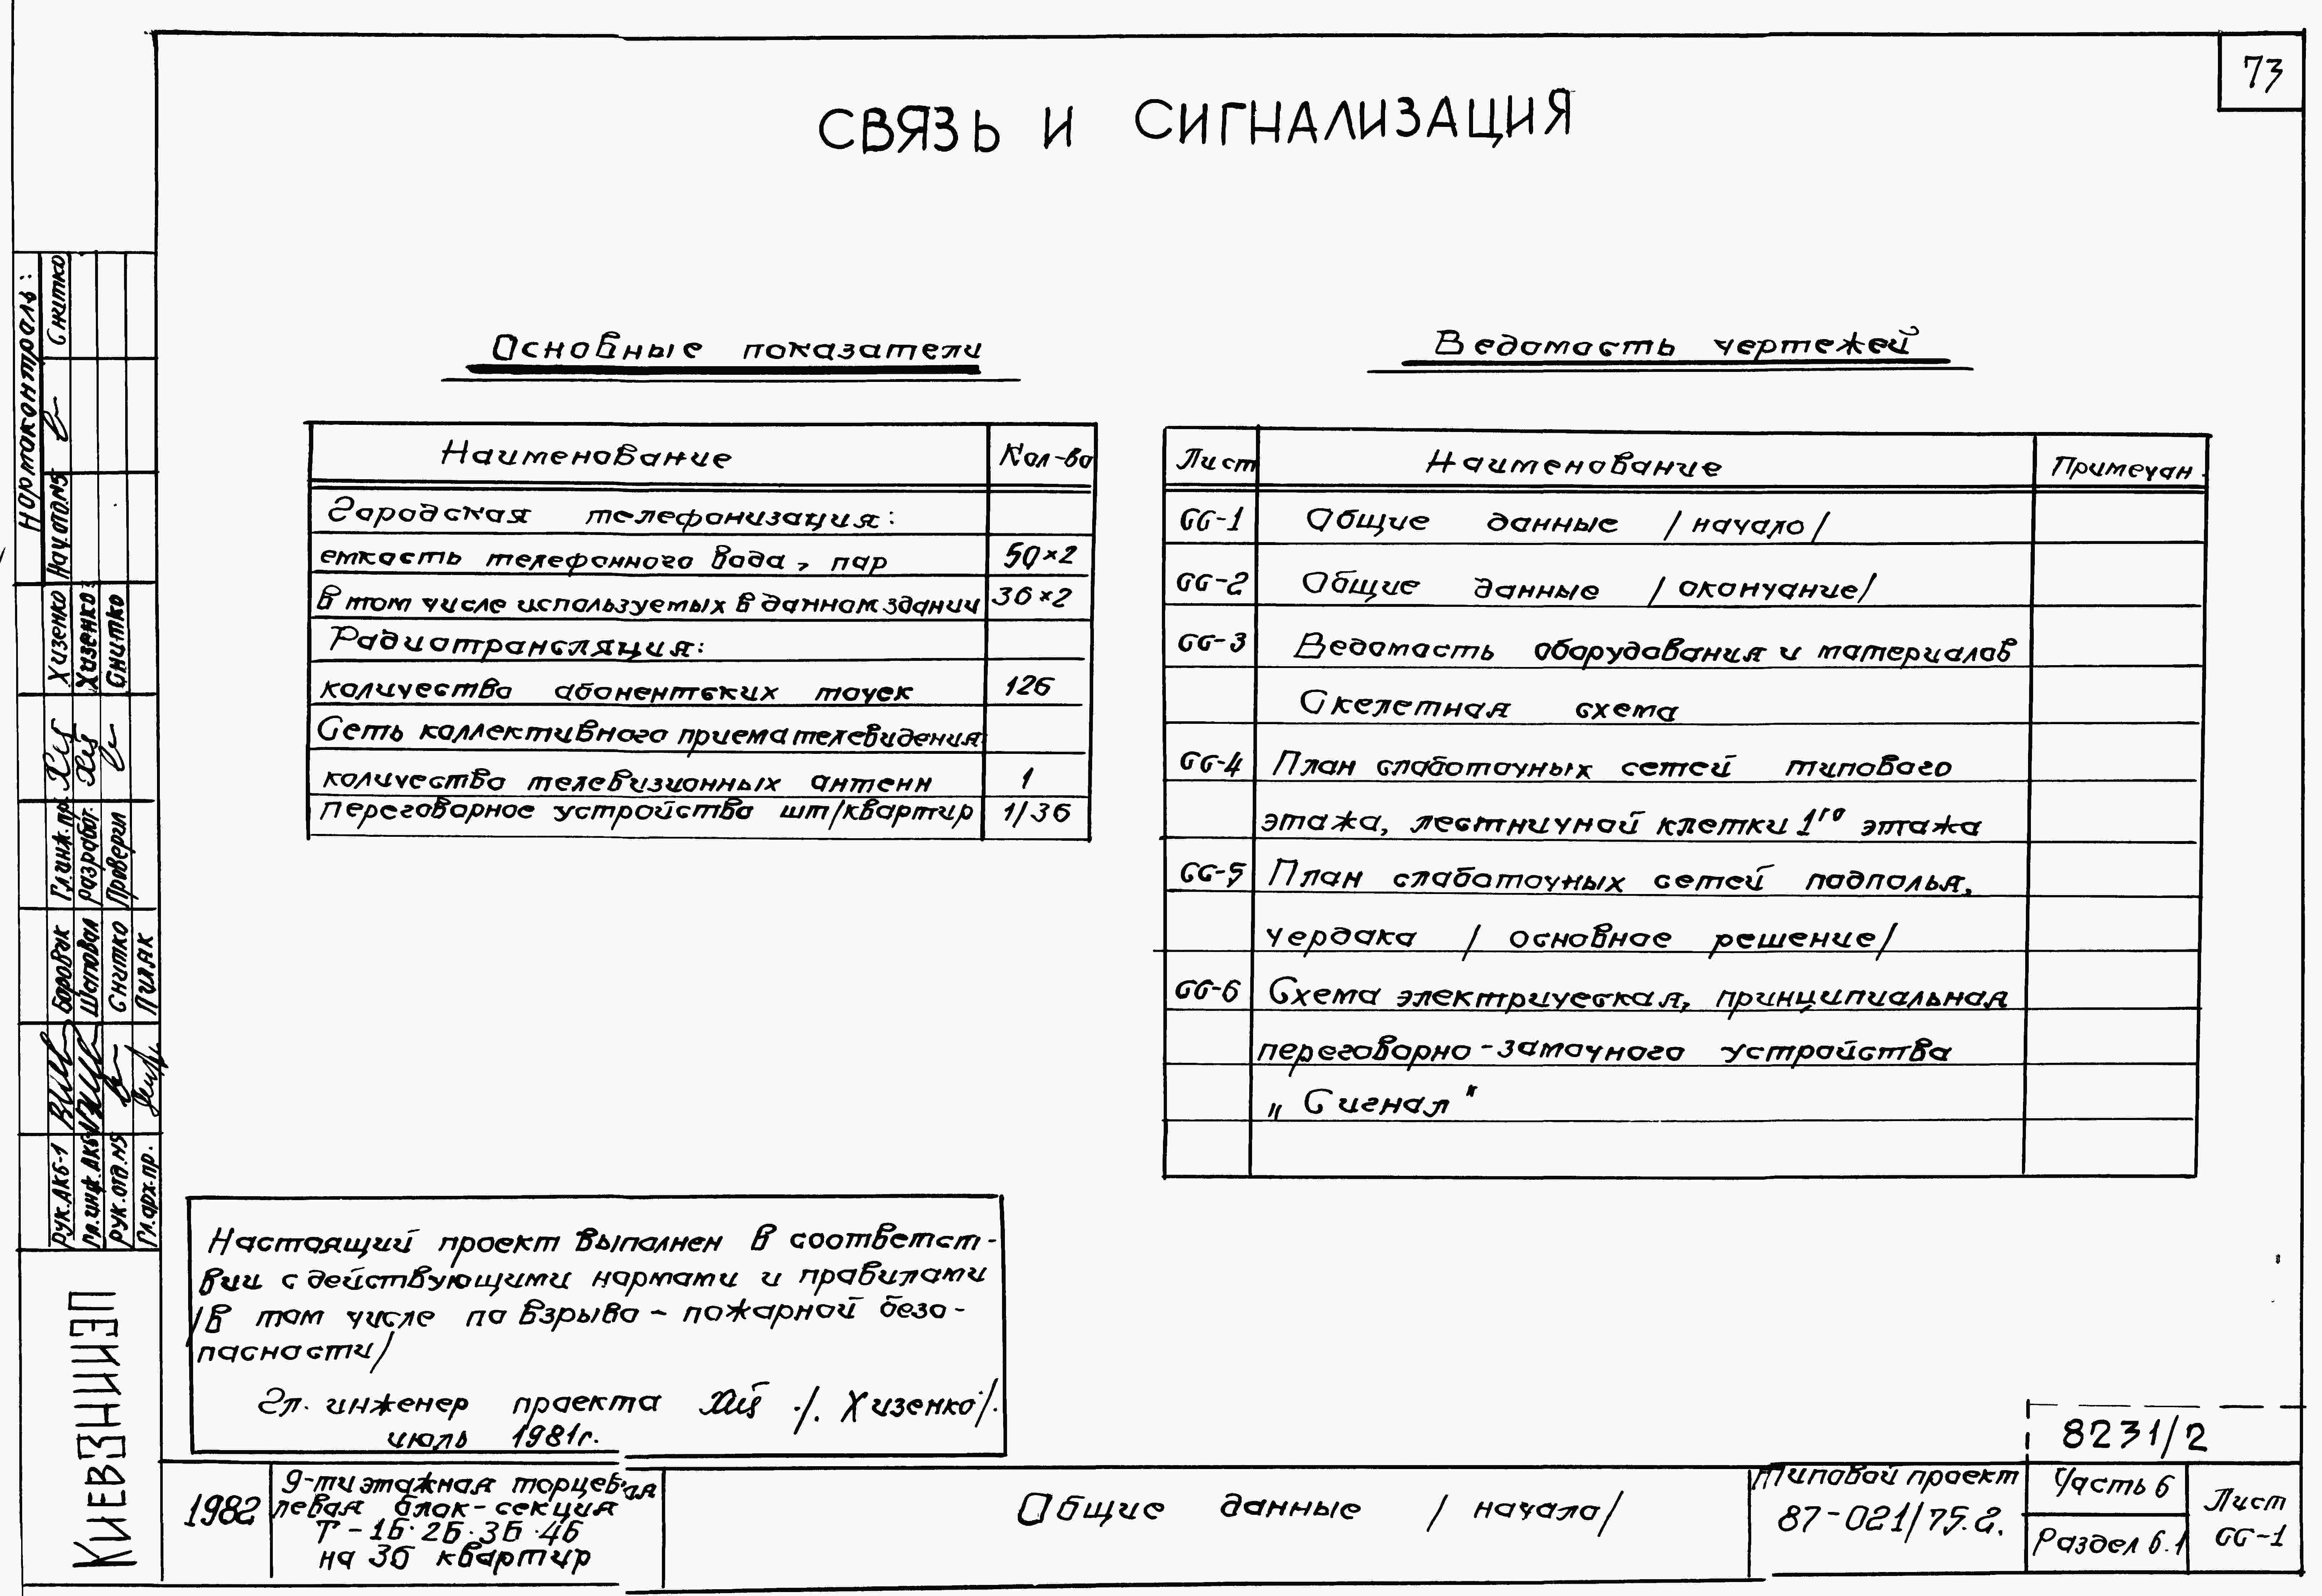 73
СВЯЗЬ И СИГНАЛИЗАЦИЯ
Основные показатели
Наименование Кол-во
Городская телефонизация:
емкость телефонного ввода, пар 50×2
в том числе используемых в данном здании 36×2
Радиотрансляция:
количество абонентских точек 126
Сеть коллективного приема телевидения:
количество телевизионных антенн 1
переговорное устройство шт/квартир 1/36
Ведомость чертежей
Лист Наименование Примечан.
СС-1 Общие данные /начало/
СС-2 Общие данные /окончание/
СС-3 Ведомость оборудования и материалов
Скелетная схема
СС-4 План слаботочных сетей типового
этажа, лестничной клетки 1го этажа
СС-5 План слаботочных сетей подполья,
чердака /основное решение/
СС-6 Схема электрическая, принципиальная
переговорно-замочного устройства
„Сигнал"
Настоящий проект выполнен в соответст-
вии с действующими нормами и правилами
/в том числе по взрыво-пожарной безо-
пасности/
Гл. инженер проекта /. Хизенко/.
июль 1981г.
Нормоконтроль:
Нач.отд.№5 Снитко
Гл.инж.пр. Хизенко
Разработ. Хизенко
Проверил Снитко
Рук.АКБ-1 Боровик
Гл.инж.АКБ-1 Шаповал
Рук.отд.№5 Снитко
Гл.арх.пр.
КиевЗНИИЭП
1982
9-ти этажная торцевая
левая блок-секция
Т-1Б·2Б·3Б·4Б
на 36 квартир
Общие данные /начало/
Типовой проект
87-021/75.2.
8231/2
Часть 6
Раздел 6.1
Лист
СС-1